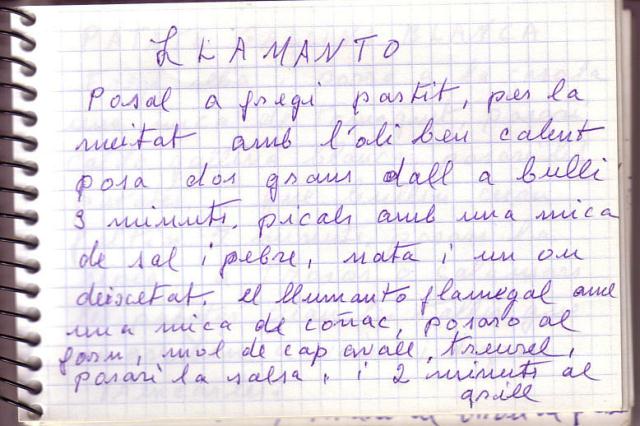 LLAMANTO
Posal a gregi partit, per la
meitat amb l'oli ben calent
posa dos grans dall a bulli
3 minuts. picals amb una mica
de sal i pebre, nata i un ou
el llumanto flamegal amb
una mica de coñac, posaro al
forn, mol de cap avall, treurel,
posari la salsa, i 2 minuts al
grill